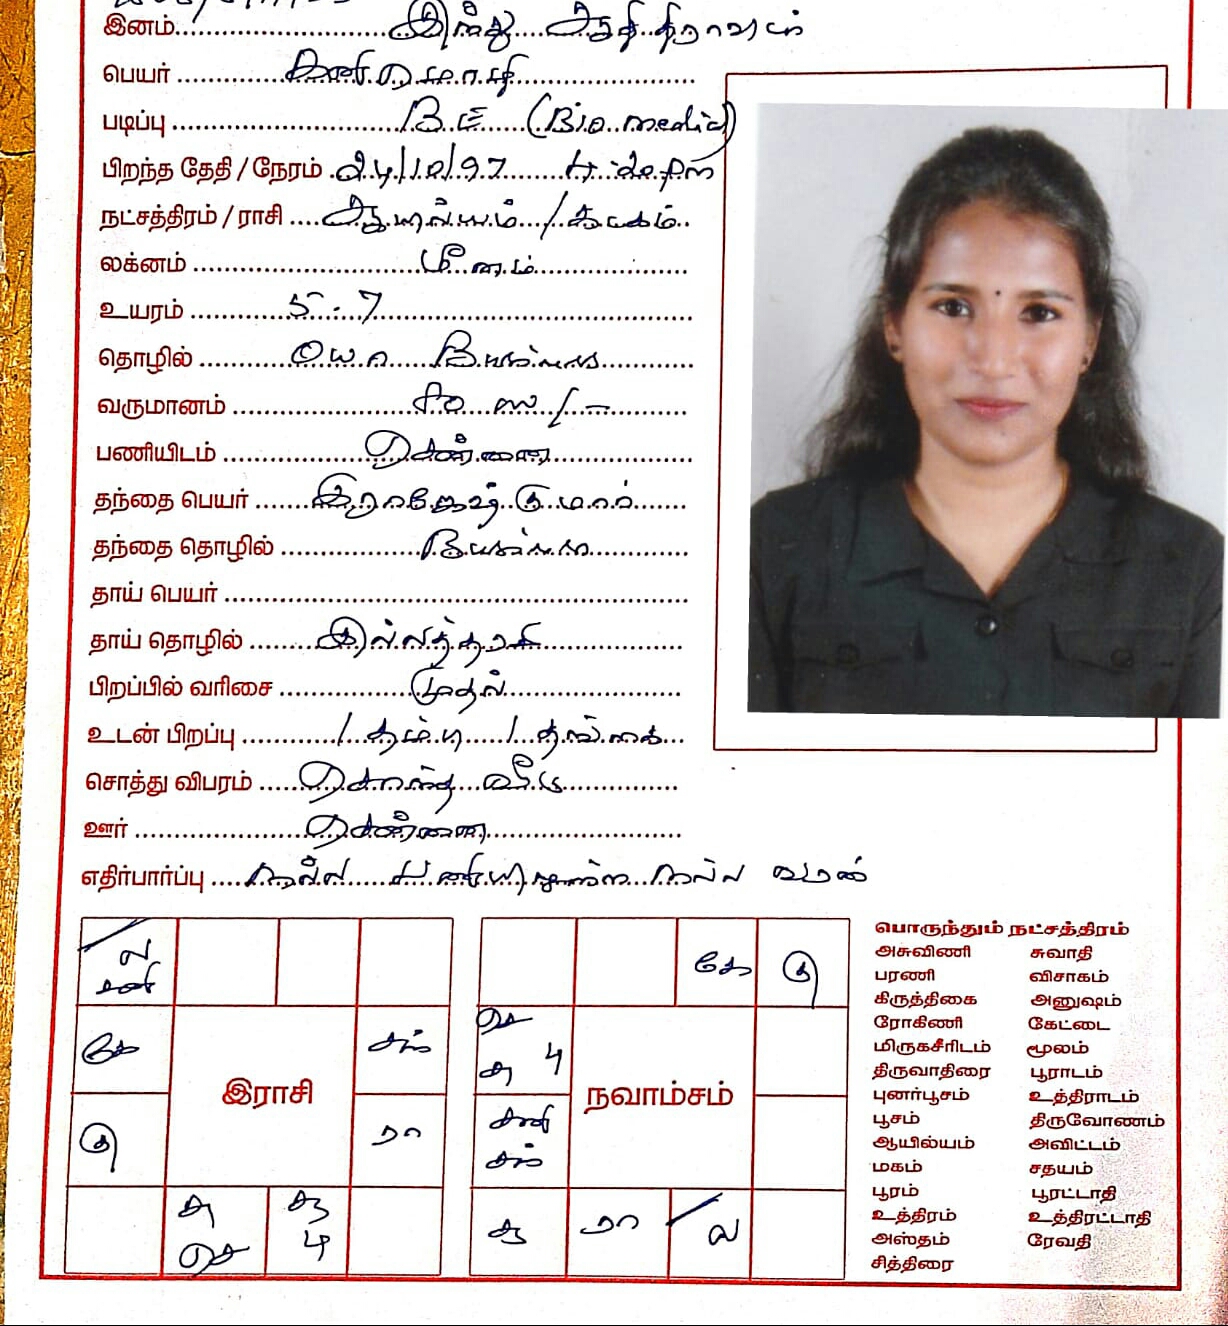 இனம் இந்து ஆதி திராவிடர்
பெயர் கனிமொழி
படிப்பு B.E (Bio medical)
பிறந்த தேதி / நேரம் 24/10/97 4.20 pm
நட்சத்திரம் / ராசி ஆயில்யம் / கடகம்
லக்னம் மீனம்
உயரம் 5-7
தொழில்
வருமானம்
பணியிடம் சென்னை
தந்தை பெயர் இராஜேஷ் குமார்
தந்தை தொழில்
தாய் பெயர்
தாய் தொழில் இல்லத்தரசி
பிறப்பில் வரிசை முதல்
உடன் பிறப்பு 1 தம்பி 1 தங்கை
சொத்து விபரம் சொந்த வீடு
ஊர் சென்னை
எதிர்பார்ப்பு நல்ல பணியிலுள்ள நல்ல வரன்
ல
சனி
கே
சந்
இராசி
கு
ரா
சு
செ
கே கு
செ
பு
நவாம்சம்
சனி
சந்
ரா ல
பொருந்தும் நட்சத்திரம்
அசுவிணி சுவாதி
பரணி விசாகம்
கிருத்திகை அனுஷம்
ரோகிணி கேட்டை
மிருகசீரிடம் மூலம்
திருவாதிரை பூராடம்
புனர்பூசம் உத்திராடம்
பூசம் திருவோணம்
ஆயில்யம் அவிட்டம்
மகம் சதயம்
பூரம் பூரட்டாதி
உத்திரம் உத்திரட்டாதி
அஸ்தம் ரேவதி
சித்திரை